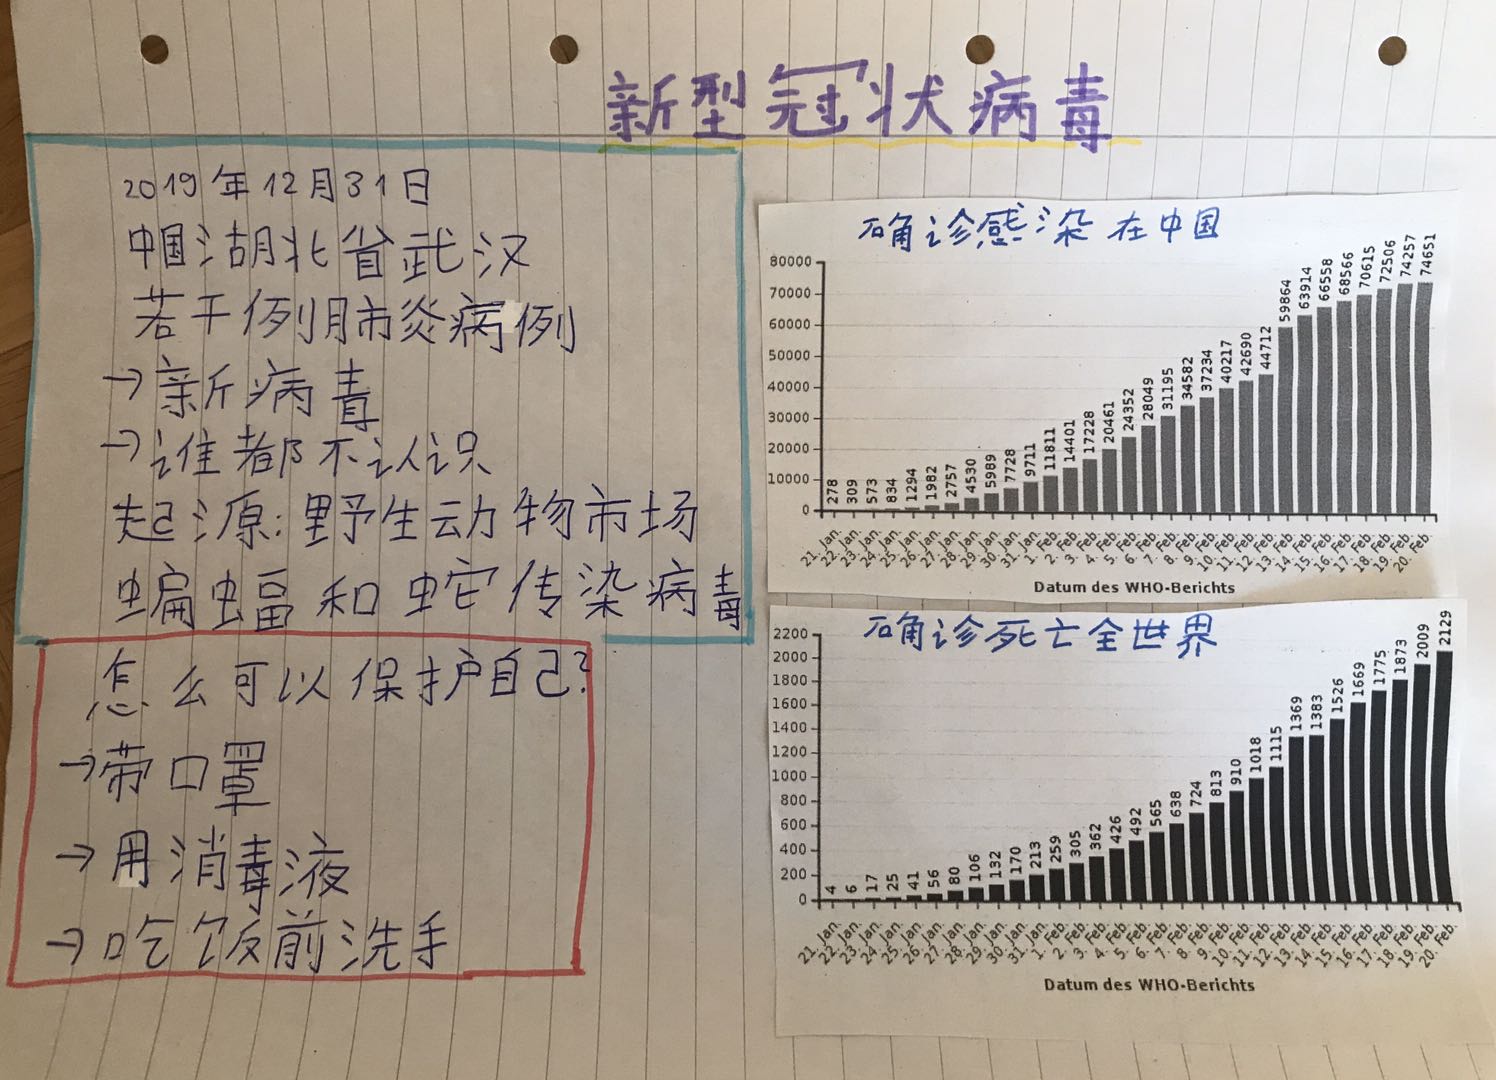 新型冠状病毒
2019年12月31日
中国湖北省武汉
若干例肺炎病例
→新病毒
→谁都不认识
起源:野生动物市场
蝙蝠和蛇传染病毒
怎么可以保护自己?
→带口罩
→用消毒液
→吃饭前洗手
确诊感染在中国
80000
70000
60000
50000
40000
30000
20000
10000
0
278 309 573 834 1294 1982 2757 4530 5989 7728 9711 11811 14401 17228 20461 24352 28049 31195 34582 37234 40217 42690 44712 59864 63914 66558 68566 70615 72506 74257 74651
21. Jan. 22. Jan. 23. Jan. 24. Jan. 25. Jan. 26. Jan. 27. Jan. 28. Jan. 29. Jan. 30. Jan. 31. Jan. 1. Feb. 2. Feb. 3. Feb. 4. Feb. 5. Feb. 6. Feb. 7. Feb. 8. Feb. 9. Feb. 10. Feb. 11. Feb. 12. Feb. 13. Feb. 14. Feb. 15. Feb. 16. Feb. 17. Feb. 18. Feb. 19. Feb. 20. Feb.
Datum des WHO-Berichts
确诊死亡全世界
2200
2000
1800
1600
1400
1200
1000
800
600
400
200
0
4 6 17 25 41 56 80 106 132 170 213 259 305 362 426 492 565 638 724 813 910 1018 1115 1369 1383 1526 1669 1775 1873 2009 2129
21. Jan. 22. Jan. 23. Jan. 24. Jan. 25. Jan. 26. Jan. 27. Jan. 28. Jan. 29. Jan. 30. Jan. 31. Jan. 1. Feb. 2. Feb. 3. Feb. 4. Feb. 5. Feb. 6. Feb. 7. Feb. 8. Feb. 9. Feb. 10. Feb. 11. Feb. 12. Feb. 13. Feb. 14. Feb. 15. Feb. 16. Feb. 17. Feb. 18. Feb. 19. Feb. 20. Feb.
Datum des WHO-Berichts